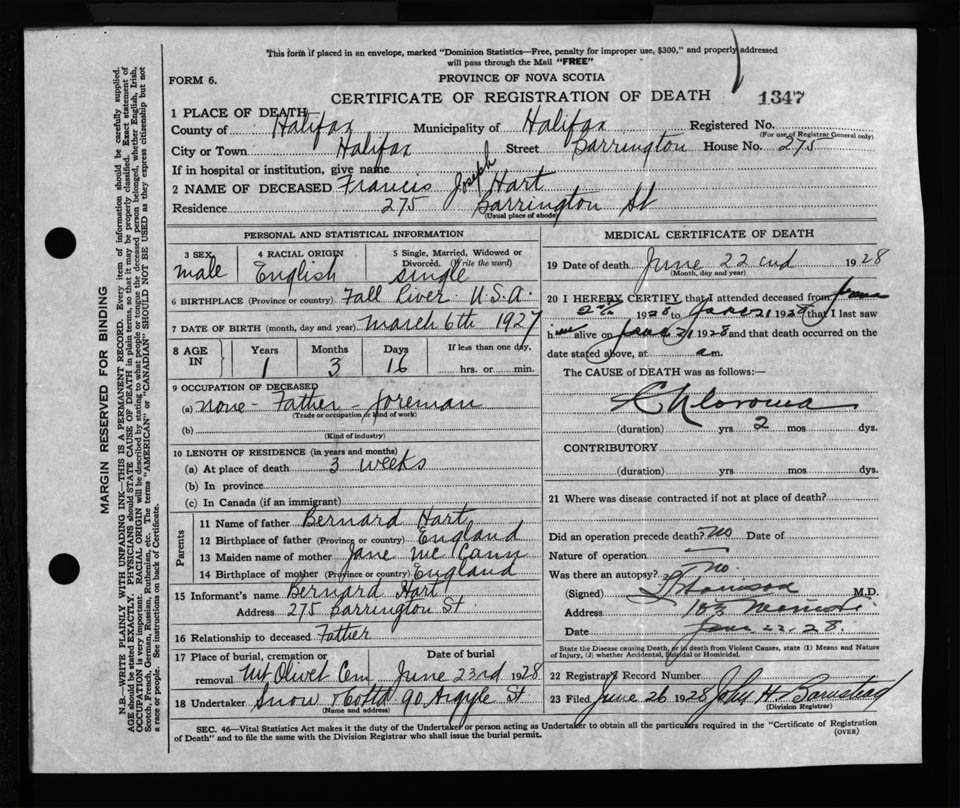 This form if placed in an envelope, marked "Dominion Statistics—Free, penalty for improper use, $300," and properly addressed
will pass through the Mail "FREE"
FORM 6.
PROVINCE OF NOVA SCOTIA
CERTIFICATE OF REGISTRATION OF DEATH
1347
1 PLACE OF DEATH
County of Halifax Municipality of Halifax Registered No.
(For use of Registrar General only)
City or Town Halifax Street Barrington House No. 275
If in hospital or institution, give name
2 NAME OF DECEASED Francis Joseph Hart
Residence 275 Barrington St
(Usual place of abode)
PERSONAL AND STATISTICAL INFORMATION
3 SEX 4 RACIAL ORIGIN 5 Single, Married, Widowed or
Divorced. (Write the word)
male English single
6 BIRTHPLACE (Province or country) Fall River U.S.A.
7 DATE OF BIRTH (month, day and year) March 6th 1927
8 AGE IN Years Months Days If less than one day,
1 3 16 hrs. or min.
9 OCCUPATION OF DECEASED
(a) none - Father - foreman
(Trade or occupation or kind of work)
(b)
(Kind of industry)
10 LENGTH OF RESIDENCE (in years and months)
(a) At place of death 3 weeks
(b) In province
(c) In Canada (if an immigrant)
Parents
11 Name of father Bernard Hart
12 Birthplace of father (Province or country) England
13 Maiden name of mother Jane McCann
14 Birthplace of mother (Province or country) England
15 Informant's name Bernard Hart
Address 275 Barrington St.
16 Relationship to deceased Father
17 Place of burial, cremation or Date of burial
removal Mt Olivet Cem June 23rd 1928
18 Undertaker Snow & Co Ltd 90 Argyle St
(Name and address)
MEDICAL CERTIFICATE OF DEATH
19 Date of death June 22nd 1928
(Month, day and year)
20 I HEREBY CERTIFY, that I attended deceased from June
1928 to June 21 1928 that I last saw
him alive on June 21 1928 and that death occurred on the
date stated above, at a.m.
The CAUSE OF DEATH was as follows:—
Chloroma
(duration) yrs 2 mos dys.
CONTRIBUTORY
(duration) yrs. mos. dys.
21 Where was disease contracted if not at place of death?
Did an operation precede death? No Date of
Nature of operation —
Was there an autopsy? No
(Signed) M.D.
Address 103
Date June 22, 28.
State the Disease causing Death, or in death from Violent Causes, state (1) Means and Nature
of Injury, (2) whether Accidental, Suicidal or Homicidal.
22 Registrar's Record Number
23 Filed June 26 1928 John H Barnstead
(Division Registrar)
SEC. 46—Vital Statistics Act makes it the duty of the Undertaker or person acting as Undertaker to obtain all the particulars required in the "Certificate of Registration
of Death" and to file the same with the Division Registrar who shall issue the burial permit.
(OVER)
MARGIN RESERVED FOR BINDING
N.B.—WRITE PLAINLY WITH UNFADING INK—THIS IS A PERMANENT RECORD. Every item of information should be carefully supplied.
AGE should be stated EXACTLY. PHYSICIANS should STATE CAUSE OF DEATH in plain terms, so that it may be properly classified. Exact statement of
OCCUPATION is very important. RACIAL ORIGIN will be described by stating to what people or tongue the deceased person belonged, whether English, Irish,
Scotch, French, German, Russian, Ruthenian, etc. The terms "AMERICAN" or "CANADIAN" SHOULD NOT BE USED as they express citizenship but not
a race or people. See instructions on back of Certificate.